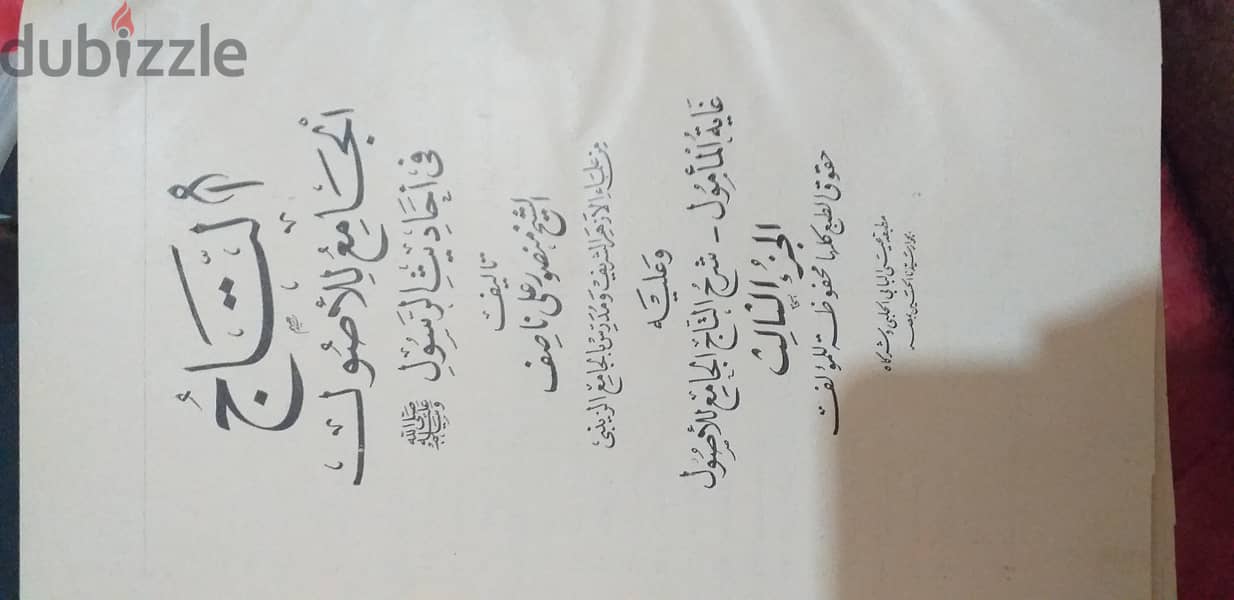 dubizzle
التَّاجُ
الْجَامِعُ لِلْأُصُول
فى أَحَادِيثِ الرَّسُولِ ﷺ
تأليف
الشيخ منصور على ناصف
من علماء الأزهر الشريف ومدرس بالجامع الزينبى
وعليه
غاية المأمول - شرح التاج الجامع للأصول
الجزء الثالث
حقوق الطبع كلها محفوظة للمؤلف
مطبعة عيسى البابى الحلبى وشركاه